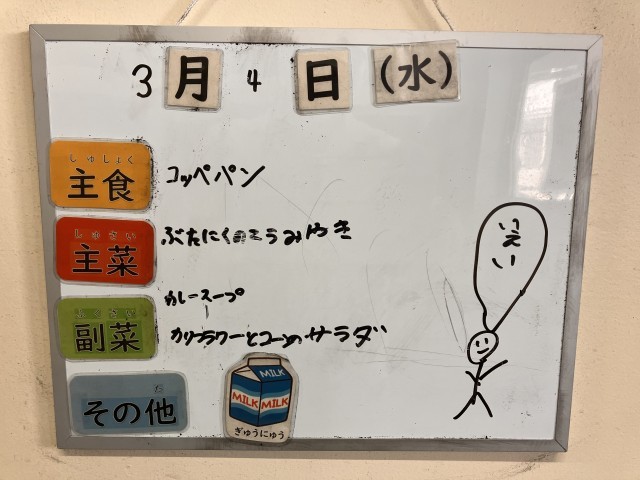 3月4日(水)
しゅしょく
主食 コッペパン
しゅさい
主菜 ぶたにくのこうみやき
カレースープ
副菜 カリフラワーとコーンのサラダ
た
その他
MILK
MILK MILK
ぎゅうにゅう
いえい